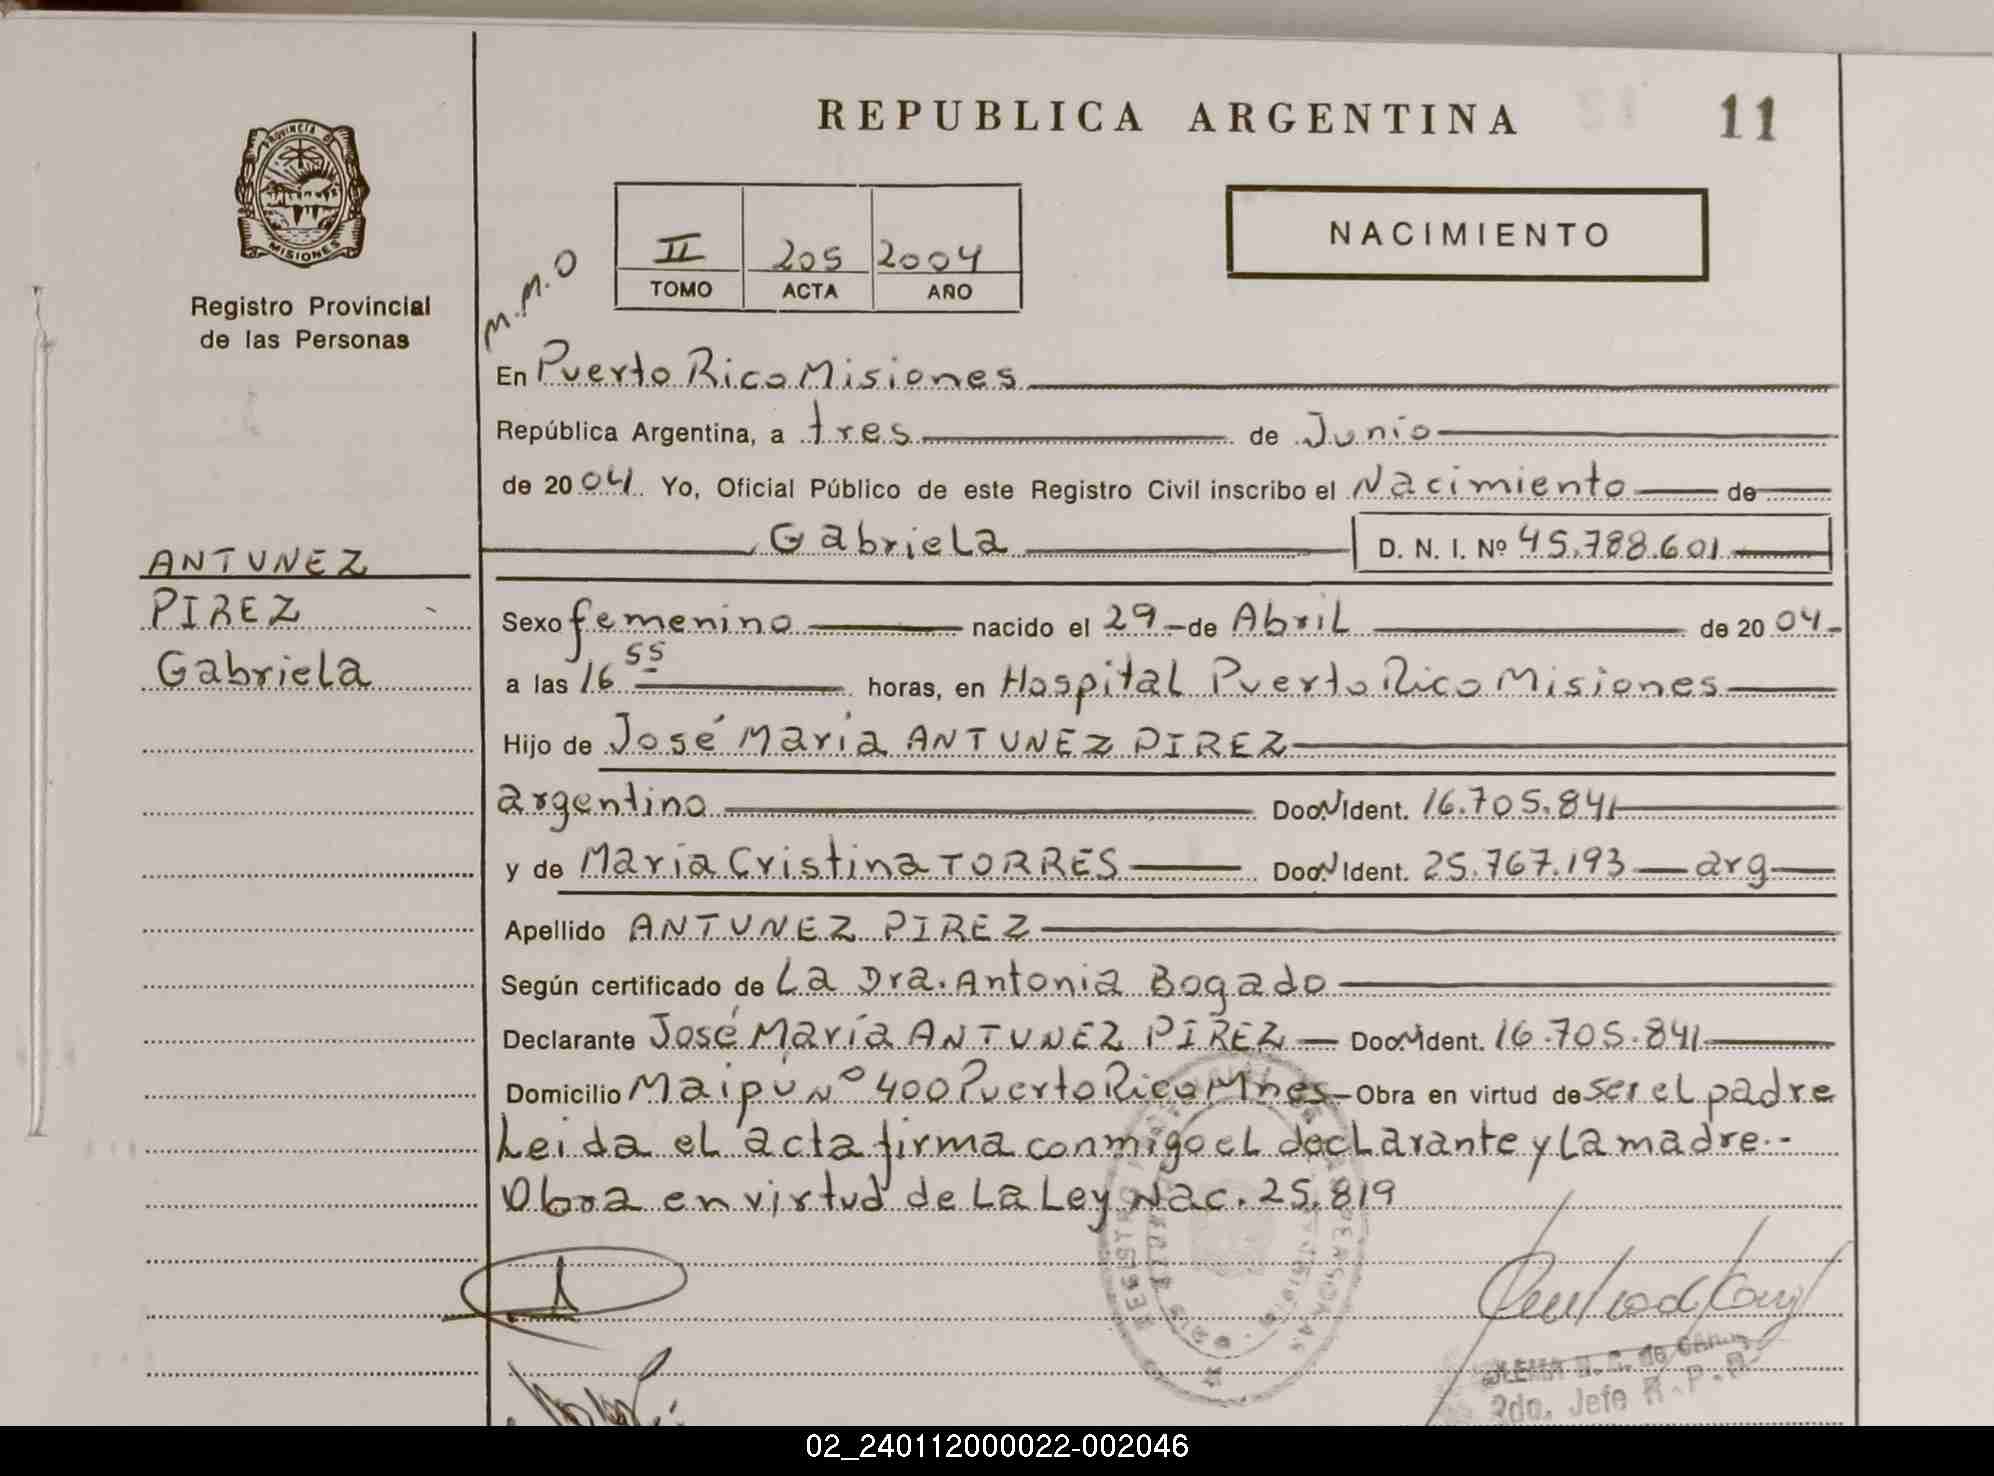 REPUBLICA ARGENTINA
11
PROVINCIA DE
MISIONES
Registro Provincial
de las Personas
II 205 2004
TOMO ACTA AÑO
NACIMIENTO
M.M.O
En Puerto Rico Misiones
República Argentina, a tres de Junio
de 2004 Yo, Oficial Público de este Registro Civil inscribo el Nacimiento de
Gabriela D. N. I. Nº 45.788.601
ANTUNEZ
PIREZ
Gabriela
Sexo femenino nacido el 29 de Abril de 2004
a las 16 55 horas, en Hospital Puerto Rico Misiones
Hijo de José María ANTUNEZ PIREZ
argentino Doc. N Ident. 16.705.841
y de María Cristina TORRES Doc. N Ident. 25.767.193 arg
Apellido ANTUNEZ PIREZ
Según certificado de La Dra. Antonia Bogado
Declarante José María ANTUNEZ PIREZ Doc. N Ident. 16.705.841
Domicilio Maipú Nº 400 Puerto Rico Mnes - Obra en virtud de ser el padre
Leida el acta firma conmigo el declarante y la madre.-
Obra en virtud de La Ley Nac. 25.819
2do. Jefe R.P.P.
02_240112000022-002046